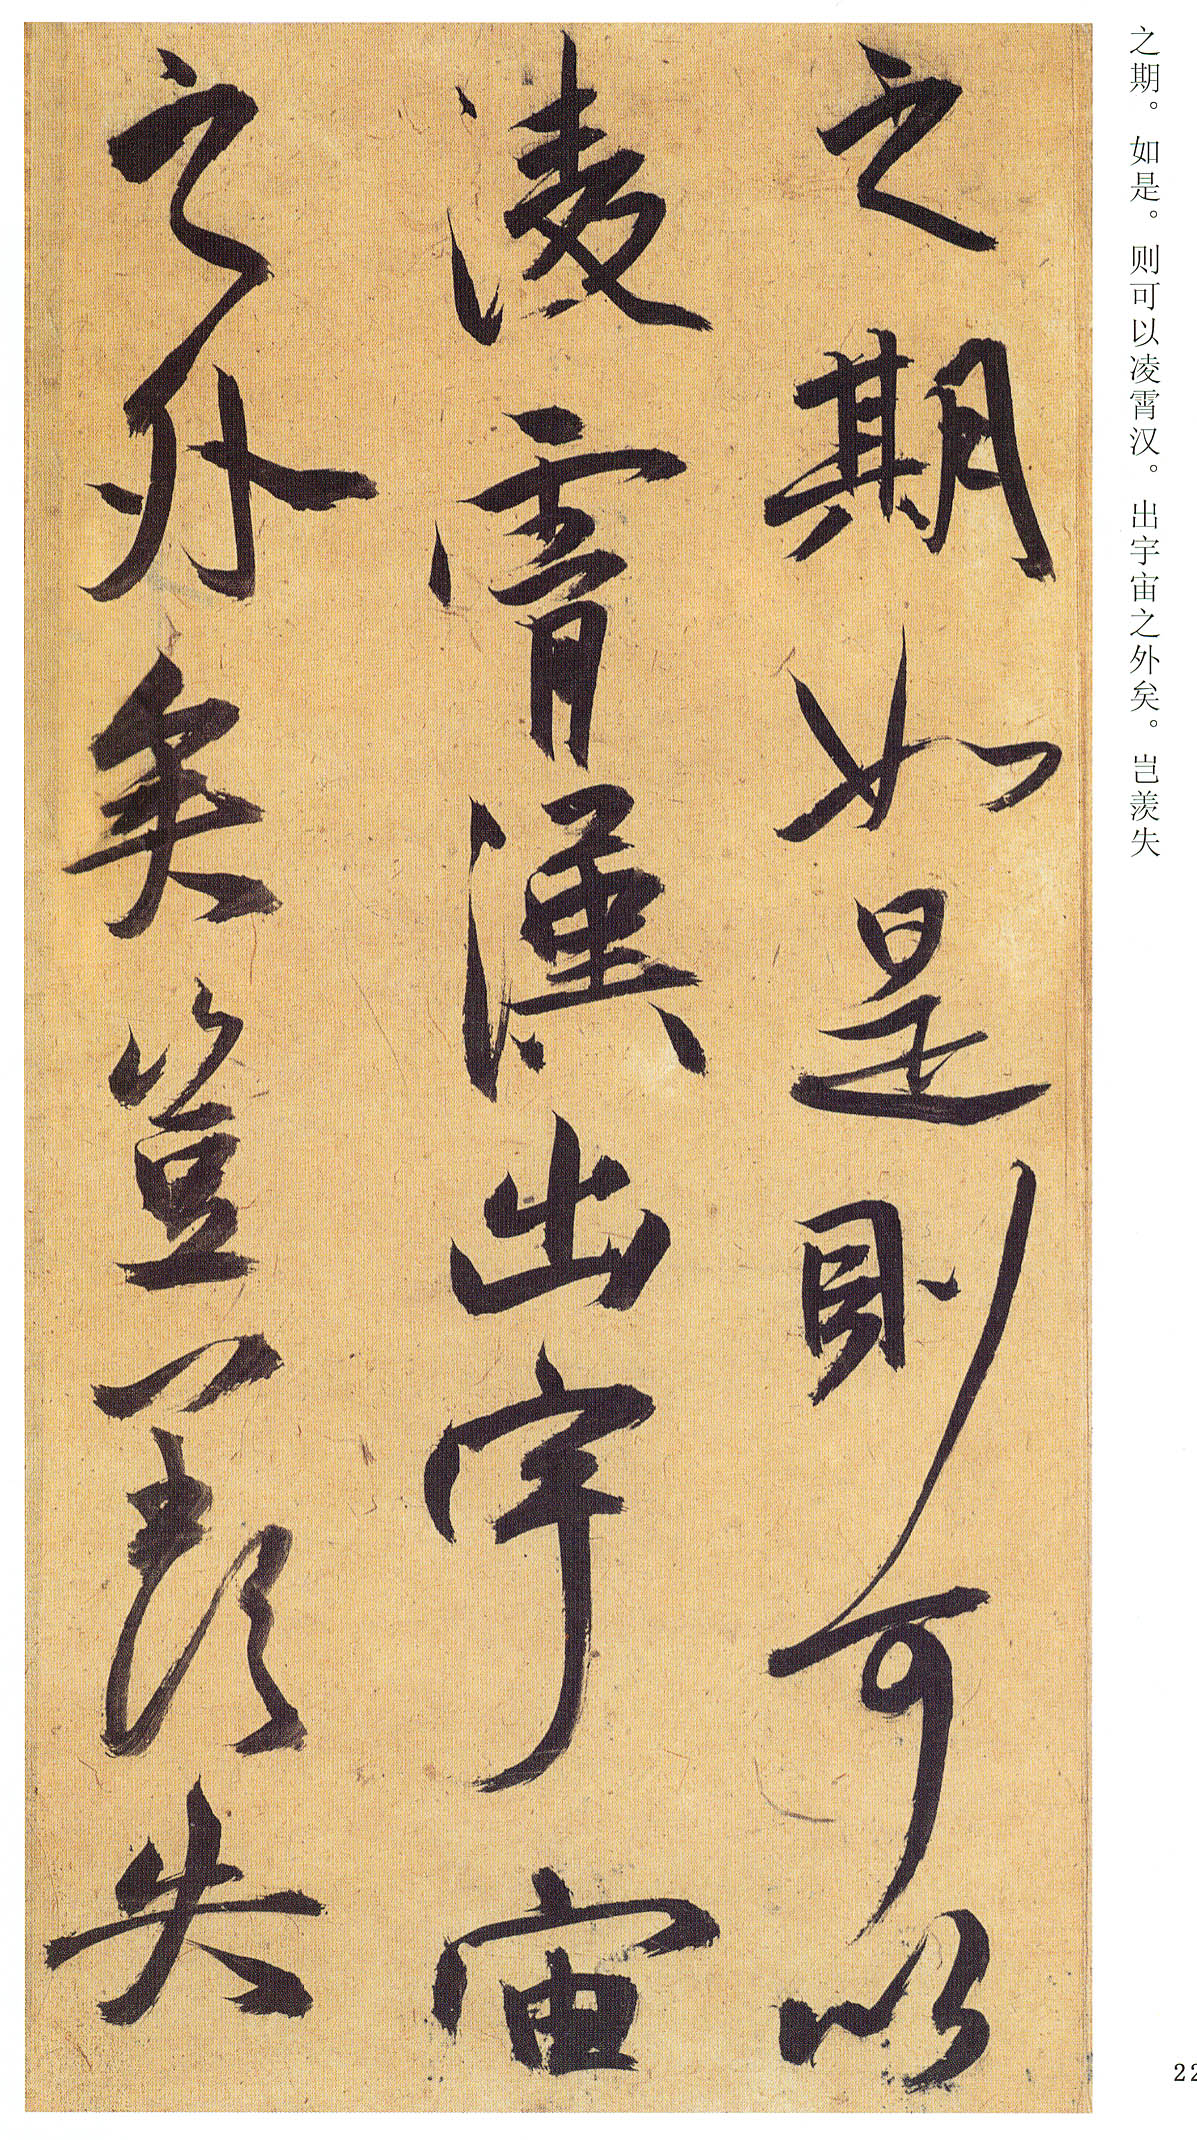 之期。如是。则可以凌霄汉。出宇宙之外矣。岂羡失
之期如是則可以
凌霄漢出宇宙
之外矣豈羡失
22